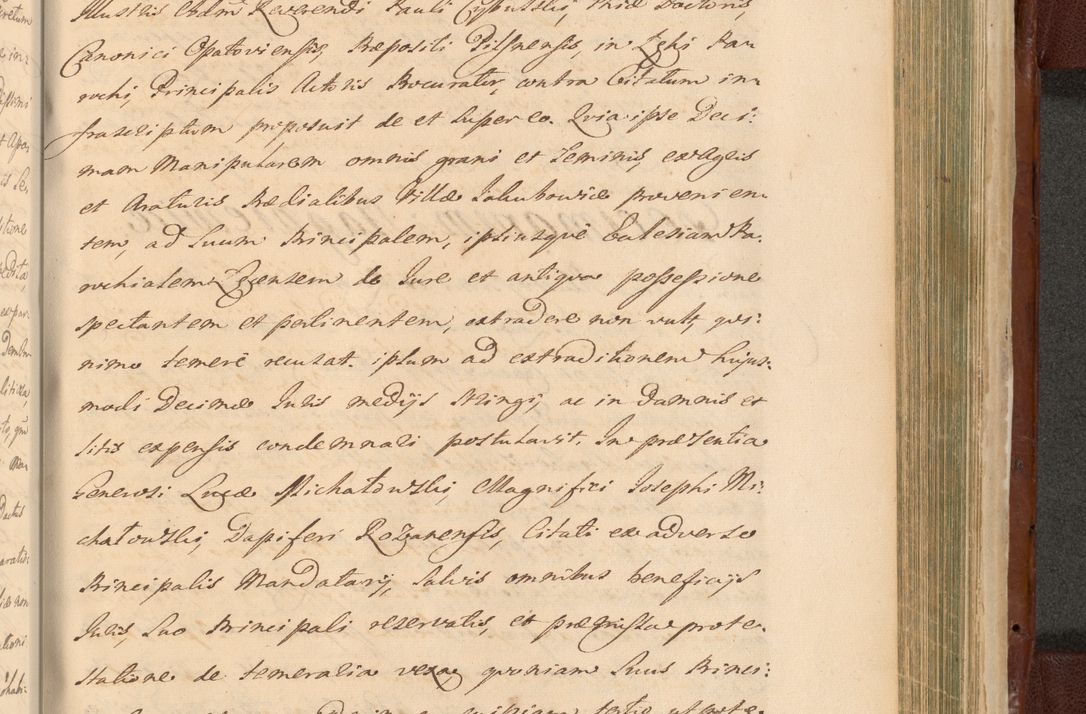 Illustris Adm Reverendi Pauli Cybulski, Phiae Doctoris,
Canonici Opatoviensis, Præpositi Pilsnensis, in Zęki Pa-
rochi, Principalis Actoris Procurator, contra Citatum in-
frascriptum proposuit de et super eo. Quia ipse Deci:
mam Manipularem omnis grani et seminis, ex Agris
et Araturis Prædialibus Villæ Jakubowice provenien-
tem, ad suum Principalem, ipsiusque Ecclesiam Pa-
rochialem de Jure et antiqua possessione
spectantem et pertinentem, extradere non vult, qui:
nimo temerè recusat. ipsum ad extraditionem hujus-
modi Decimæ Juris medijs stringi, ac in damnis et
litis expensis condemnari postulavit. In præsentia
Generosi Lucæ Michałowski Magnifici Josephi Mi:
chałowski, Dapiferi Rozanensis, Citati ex adverso
Principalis Mandatarij, salvis omnibus beneficijs
Juris, suo Principali reservatis, et præmissa prote-
statione de temeraria vexa quoniam suus Princi: